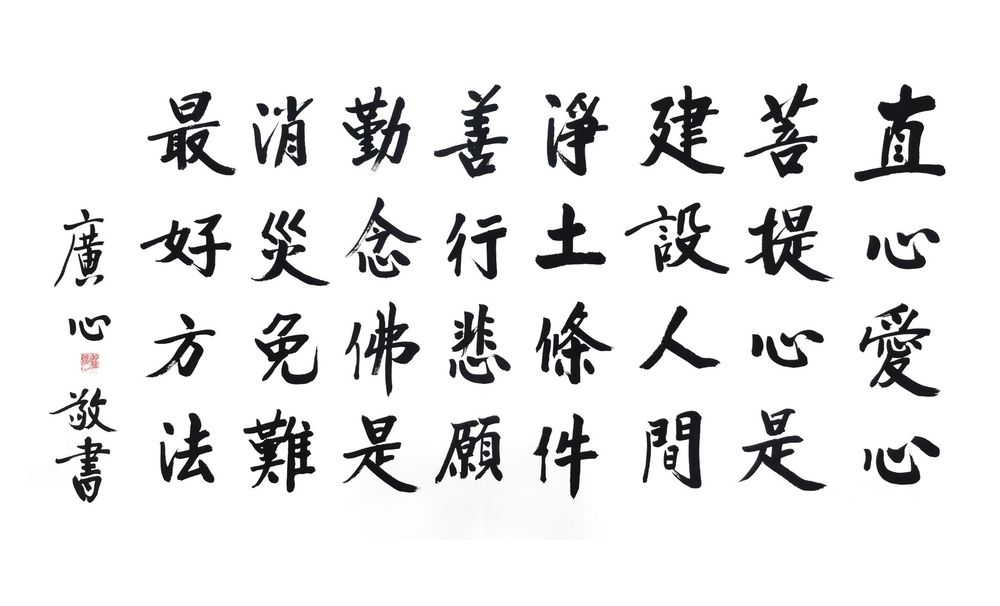 直心愛心
菩提心是
建設人間
淨土條件
善行悲願
勤念佛是
消災免難
最好方法
廣心敬書